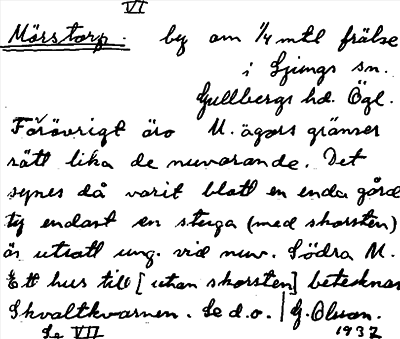 VI
Mörstorp. by om 1/4 mtl frälse
i Ljungs sn.
Gullbergs hd. Ögl.
Förövrigt äro M. ägors gränser
rätt lika de nuvarande. Det
synes då varit blott en enda gård
ty endast en stuga (med skorsten)
är utsatt ung. vid nuv. Södra M.
Ett hus till [utan skorsten] betecknar
Skvaltkvarnen. Se d.o. | G. Olson.
Se VII 1937